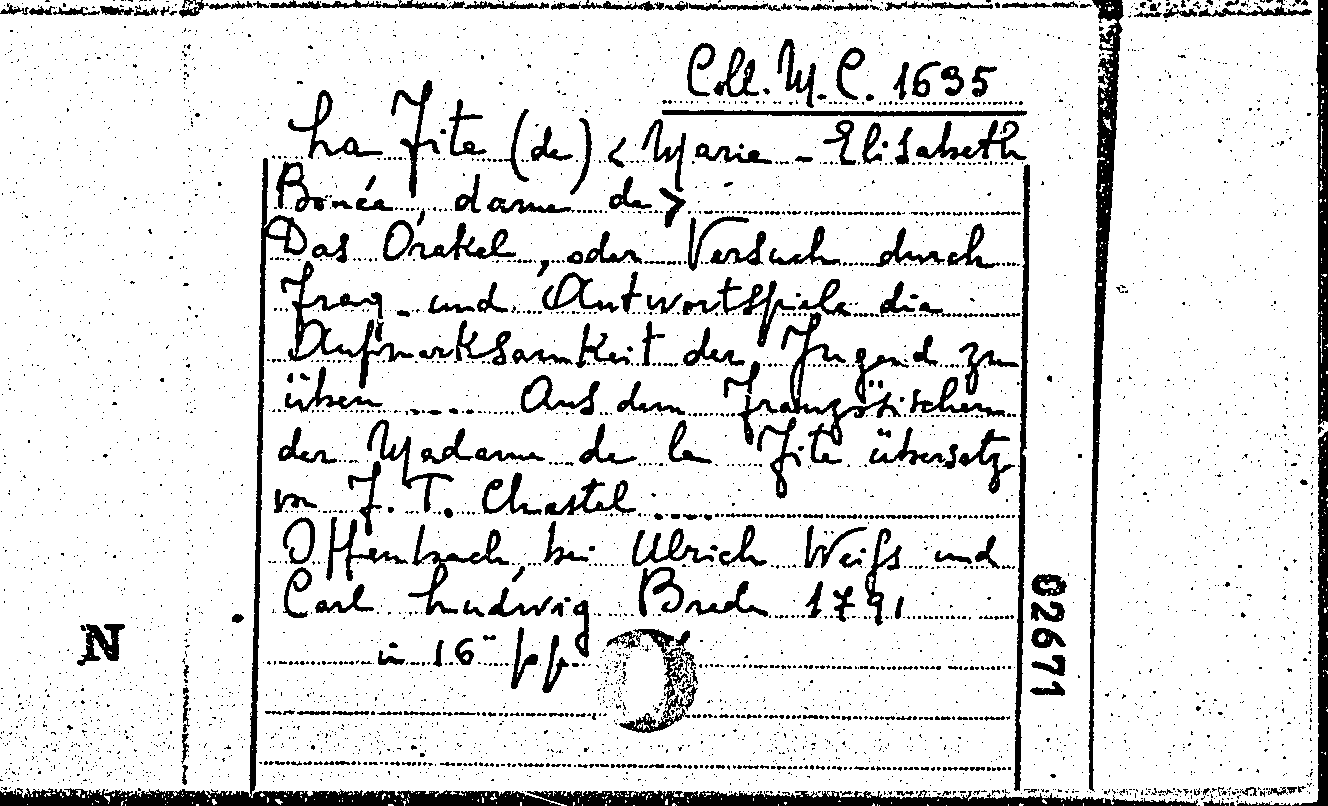 Coll. M. C. 1635
La Fite (de) < Marie - Elisabeth
Bouée, dame de >
Das Orakel, oder Versuch durch
Frag- und Antwortspiele die
Aufmerksamkeit der Jugend zu
üben .... Aus dem Französischen
der Madame de la Fite übersetz
von J. T. Chastel .....
Offenbach, bei Ulrich Weiss und
Carl Ludwig Brede 1791
in 16° pp.
02671
N